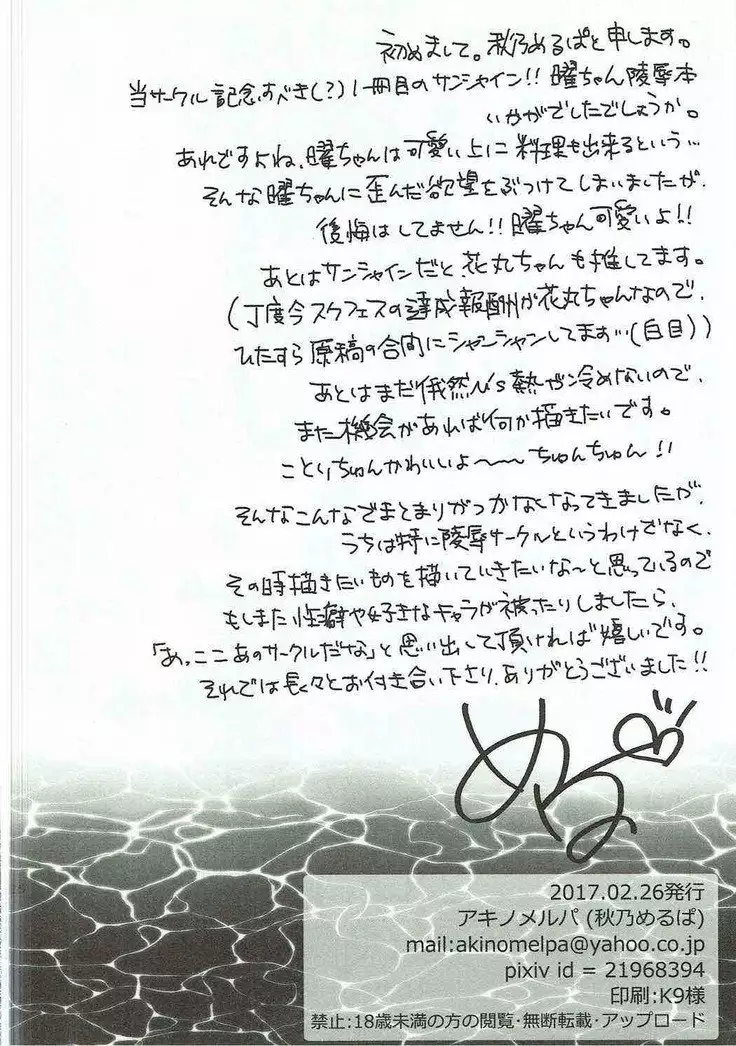 初めまして。秋乃めるぱと申します。
当サークル記念すべき(?)1冊目のサンシャイン!!曜ちゃん陵辱本
いかがでしたでしょうか。
あれですよね、曜ちゃんは可愛い上に料理も出来るという…
そんな曜ちゃんに歪んだ欲望をぶつけてしまいましたが、
後悔はしてません!!曜ちゃん可愛いよ!!
あとはサンシャインだと花丸ちゃんも推してます。
(丁度今スクフェスの達成報酬が花丸ちゃんなので、
ひたすら原稿の合間にシャンシャンしてます…(白目))
あとはまだ俄然μ's熱が冷めないので、
また機会があれば何か描きたいです。
ことりちゅんかわいいよ〜〜〜ちゅんちゅん!!
そんなこんなでまとまりがつかなくなってきましたが、
うちは特に陵辱サークルというわけでなく、
その時描きたいものを描いていきたいな〜と思っているので
もしまた性癖や好きなキャラが被ったりしましたら、
「あっここあのサークルだな」と思い出して頂ければ嬉しいです。
それでは長々とお付き合い下さり、ありがとうございました!!
める
2017.02.26発行
アキノメルパ (秋乃めるぱ)
mail:akinomelpa@yahoo.co.jp
pixiv id = 21968394
印刷:K9様
禁止:18歳未満の方の閲覧・無断転載・アップロード